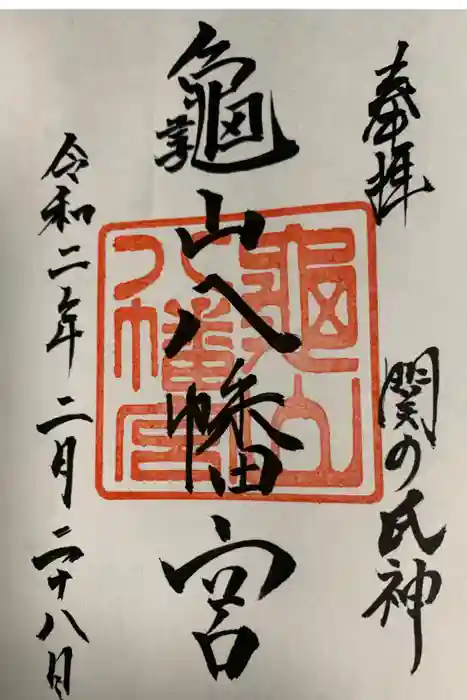 奉拝 関の氏神
龜山八幡宮
令和二年二月二十八日
龜山八幡宮